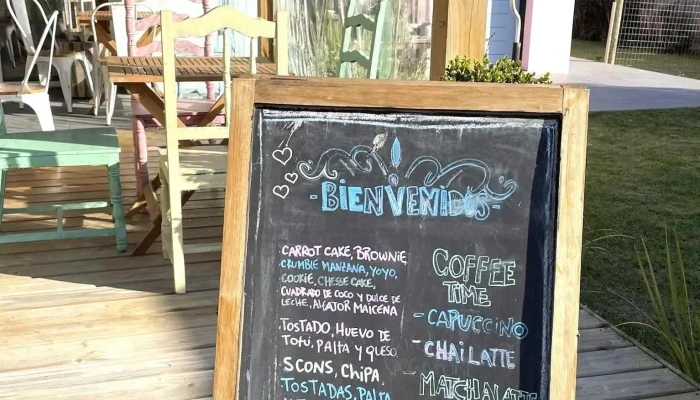 -BIENVENIDOS-
CARROT CAKE, BROWNIE,
CRUMBLE MANZANA, YOYO,
COOKIE, CHEESE CAKE,
CUADRADO DE COCO Y DULCE DE
LECHE, ALFAJOR MAICENA
TOSTADO, HUEVO DE
TOFÚ, PALTA Y QUESO
SCONS, CHIPA,
TOSTADAS, PALTA
COFFEE
TIME
- CAPUCCINO
- CHAI LATTE
MATCHA LATTE